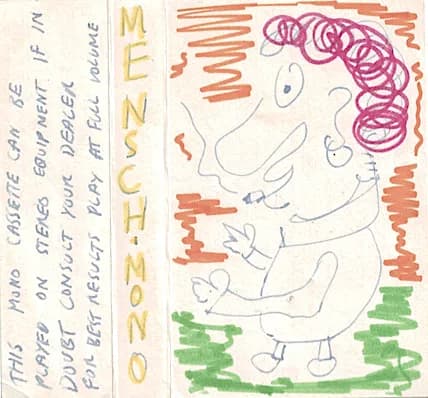 THIS MONO CASSETTE CAN BE
PLAYED ON STEREO EQUIPMENT IF IN
DOUBT CONSULT YOUR DEALER
FOR BEST RESULTS PLAY AT FULL VOLUME
MENSCH·MONO